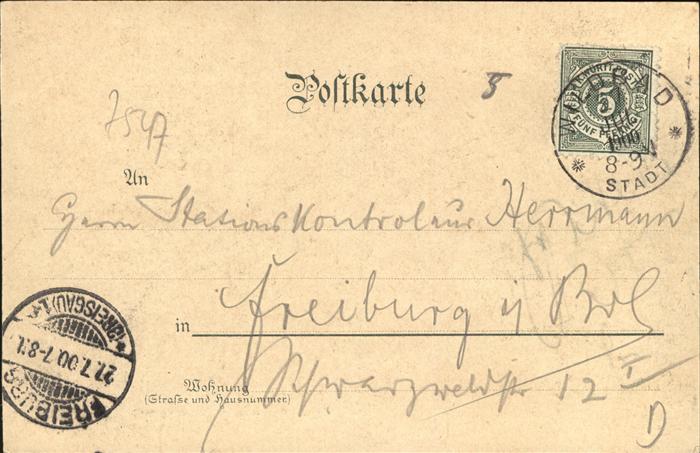 Postkarte
5
K. WÜRTT. POST
5
FÜNF PFENNIG
1900
8-9 V
STADT
7547
An
Herrn Stationskontroleur Herrmann
in Freiburg i/ Brsl
Wohnung
(Straße und Hausnummer)
Schwarzwaldstr 12 I
D
FREIBURG (BREISGAU)
27.7.00.7-8